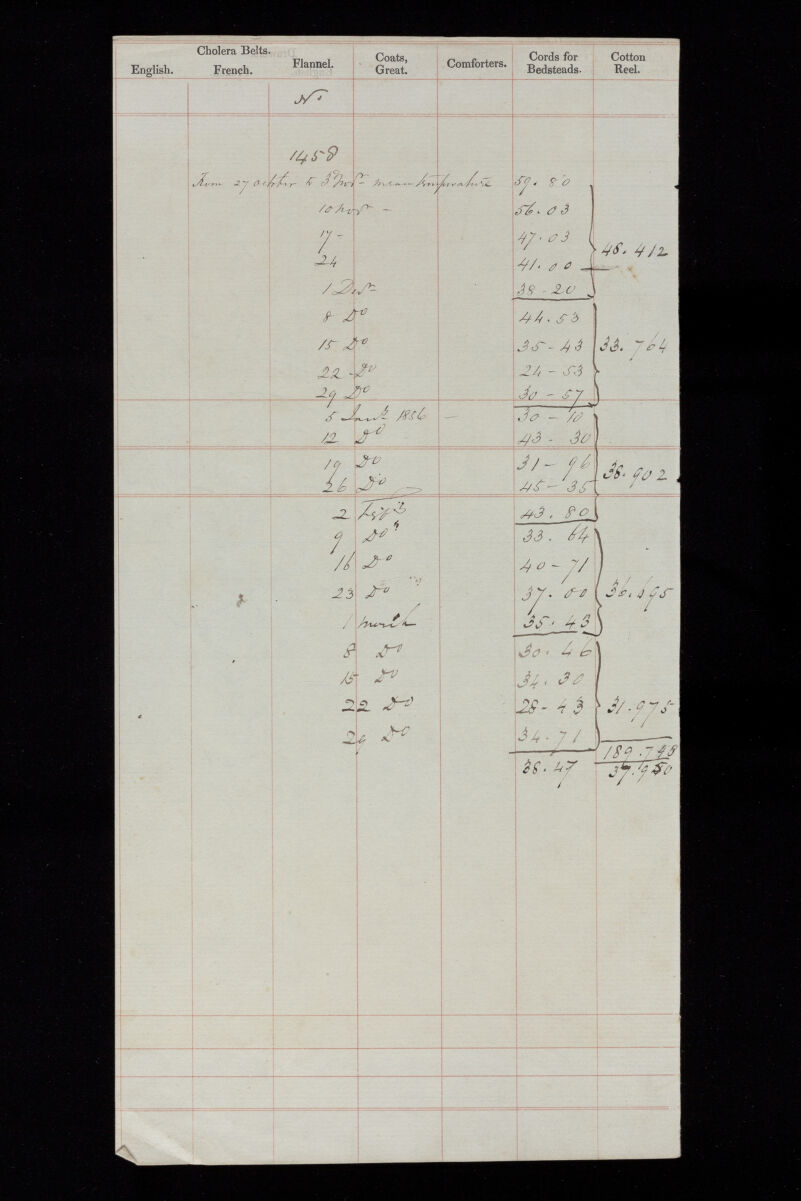 Cholera Belts.
English. French. Flannel. Coats, Great. Comforters. Cords for Bedsteads. Cotton Reel.
No
1458
From 27 october to 3d Novr mean temperature 59. 80
10 Novr - 56. 03
17 - 47. 03 48. 412
24 41. 00
1 Decr 38 - 20
8 Do 44. 53
15 Do 35 - 43 33. 764
22 - Do 24 - 53
29 Do 30 - 57
5 Jany 1856 - 30 - 10
12 Do 43 - 30
19 Do 31 - 96 38. 902
26 Do 45 - 35
2 Feby 43. 80
9 Do 33. 64
16 Do 40 - 71
23 Do 37. 00 36. 695
1 March 35. 43
8 Do 30. 46
15 Do 34. 30
22 Do 28 - 43 31. 975
29 Do 34. 71
189. 748
38. 47 37. 950